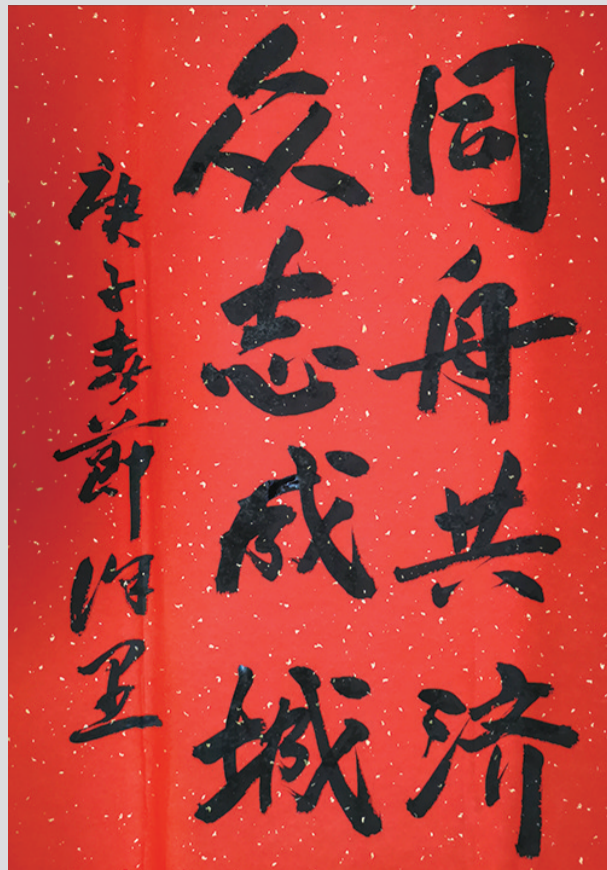 同舟共济
众志成城
庚子春节